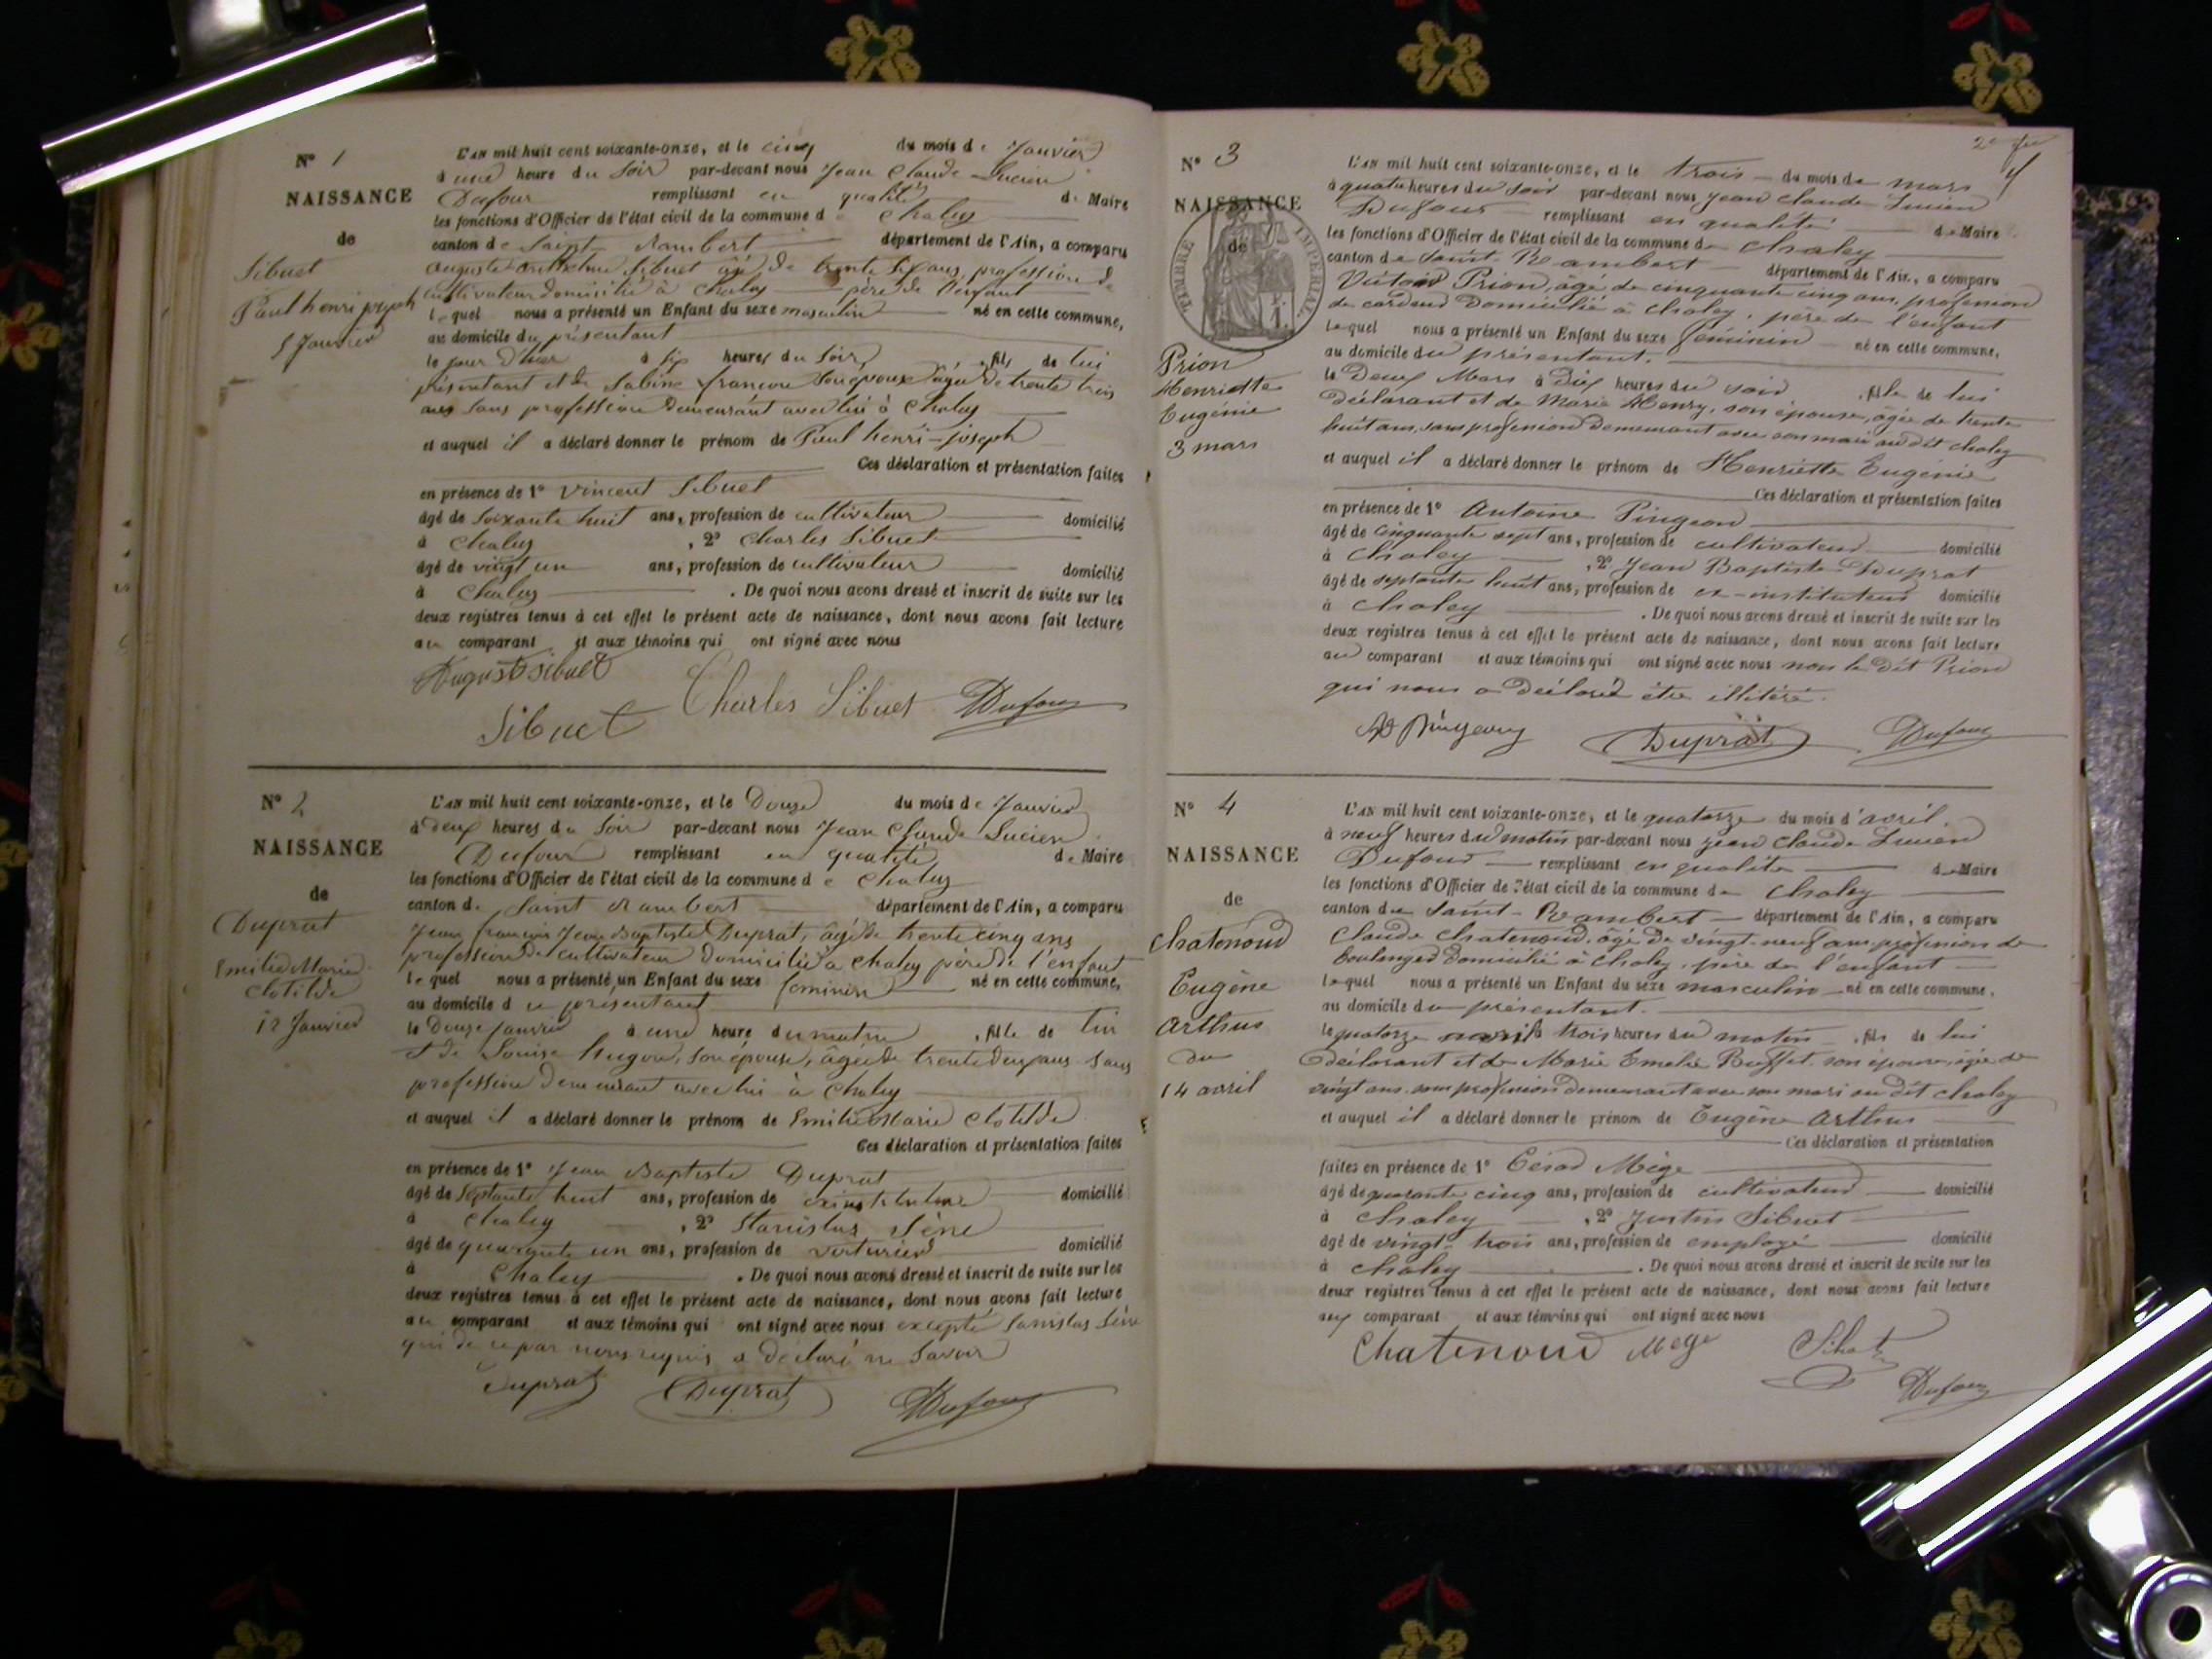 N° 1
NAISSANCE
de
Sibuet
Paul henri joseph
5 Janvier
L'AN mil huit cent soixante-onze, et le cinq du mois de Janvier
à une heure du Soir par-devant nous Jean Claude Lucien
Dufour remplissant en qualité de Maire
les fonctions d'Officier de l'état civil de la commune de Chaley
canton de Saint Rambert département de l'Ain, a comparu
auguste Sibuet âgé de trente six ans, profession de
cultivateur domicilié à Chaley père de l'enfant
lequel nous a présenté un Enfant du sexe masculin né en cette commune,
au domicile du présentant
le jour d'hier à six heures du Soir, fils de lui
présentant et de Sabine françon son épouse âgée de trente trois
ans sans profession demeurant avec lui à Chaley
et auquel il a déclaré donner le prénom de Paul henri-joseph
Ces déclaration et présentation faites
en présence de 1° Vincent Sibuet
âgé de soixante huit ans, profession de cultivateur domicilié
à Chaley, 2° Charles Sibuet
âgé de vingt un ans, profession de cultivateur domicilié
à Chaley. De quoi nous avons dressé et inscrit de suite sur les
deux registres tenus à cet effet le présent acte de naissance, dont nous avons fait lecture
au comparant et aux témoins qui ont signé avec nous
August Sibuet
Sibuet Charles Sibuet Dufour
N° 2
NAISSANCE
de
Duprat
Emilie Marie
Clotilde
12 Janvier
L'AN mil huit cent soixante-onze, et le Douze du mois de Janvier
à deux heures du Soir par-devant nous Jean Claude Lucien
Dufour remplissant en qualité de Maire
les fonctions d'Officier de l'état civil de la commune de Chaley
canton de Saint Rambert département de l'Ain, a comparu
Jean françois Jean Baptiste Duprat, âgé de trente cinq ans
profession de cultivateur domicilié à Chaley père de l'enfant
lequel nous a présenté un Enfant du sexe feminin né en cette commune,
au domicile du présentant
le Douze Janvier à une heure du matin, fille de lui
et de Louise hugon, son épouse, âgée de trente deux ans sans
profession demeurant avec lui à Chaley
et auquel il a déclaré donner le prénom de Emilie Marie Clotilde
Ces déclaration et présentation faites
en présence de 1° Jean Baptiste Duprat
âgé de Septante huit ans, profession de ex instituteur domicilié
à Chaley, 2° Stanislas Sène
âgé de quarante un ans, profession de voiturier domicilié
à Chaley. De quoi nous avons dressé et inscrit de suite sur les
deux registres tenus à cet effet le présent acte de naissance, dont nous avons fait lecture
au comparant et aux témoins qui ont signé avec nous excepté Sanislas Sène
qui de ce par nous requis a déclaré ne Savoir
Duprat Duprat Dufour
2e fet
4
N° 3
NAISSANCE
de
TIMBRE IMPERIAL
Prion
Henriette
Eugénie
3 mars
L'AN mil huit cent soixante-onze, et le trois du mois de mars
à quatre heures du soir par-devant nous Jean Claude Lucien
Dufour remplissant en qualité de Maire
les fonctions d'Officier de l'état civil de la commune de Chaley
canton de Saint Rambert département de l'Ain, a comparu
Victor Prion, âgé de cinquante cinq ans, profession
de cardeur domicilié à Chaley, père de l'enfant
lequel nous a présenté un Enfant du sexe féminin né en cette commune,
au domicile du présentant.
le Deux Mars à Dix heures du soir, fille de lui
déclarant et de Marie Henry, son épouse, âgée de trente
huit ans, sans profession demeurant avec son mari au dit Chaley
et auquel il a déclaré donner le prénom de Henriette Eugénie
Ces déclaration et présentation faites
en présence de 1° Antoine Pingeon
âgé de cinquante sept ans, profession de cultivateur domicilié
à Chaley, 2° Jean Baptiste Duprat
âgé de septante huit ans, profession de ex-instituteur domicilié
à Chaley. De quoi nous avons dressé et inscrit de suite sur les
deux registres tenus à cet effet le présent acte de naissance, dont nous avons fait lecture
au comparant et aux témoins qui ont signé avec nous non le dit Prion
qui nous a déclaré être illitéré.
Pingeon Duprat Dufour
N° 4
NAISSANCE
de
Chatenoud
Eugène
Arthus
du
14 avril
L'AN mil huit cent soixante-onze, et le quatorze du mois d'avril.
à neuf heures du matin par-devant nous Jean Claude Lucien
Dufour remplissant en qualité de Maire
les fonctions d'Officier de l'état civil de la commune de Chaley
canton de Saint-Rambert département de l'Ain, a comparu
Claude Chatenoud, âgé de vingt-neuf ans profession de
boulanger domicilié à Chaley, père de l'enfant
lequel nous a présenté un Enfant du sexe masculin né en cette commune,
au domicile du présentant.
le quatorze avril à trois heures du matin, fils de lui
déclarant et de Marie Emelie Buffet son épouse, âgée de
vingt ans sans profession demeurant avec son mari au dit Chaley
et auquel il a déclaré donner le prénom de Eugène Arthus
Ces déclaration et présentation
faites en présence de 1° César Mège
âgé de quarante cinq ans, profession de cultivateur domicilié
à Chaley, 2° Justin Sibuet
âgé de vingt-trois ans, profession de employé domicilié
à Chaley. De quoi nous avons dressé et inscrit de suite sur les
deux registres tenus à cet effet le présent acte de naissance, dont nous avons fait lecture
aux comparant et aux témoins qui ont signé avec nous
Chatenoud Mege Sibuet
Dufour